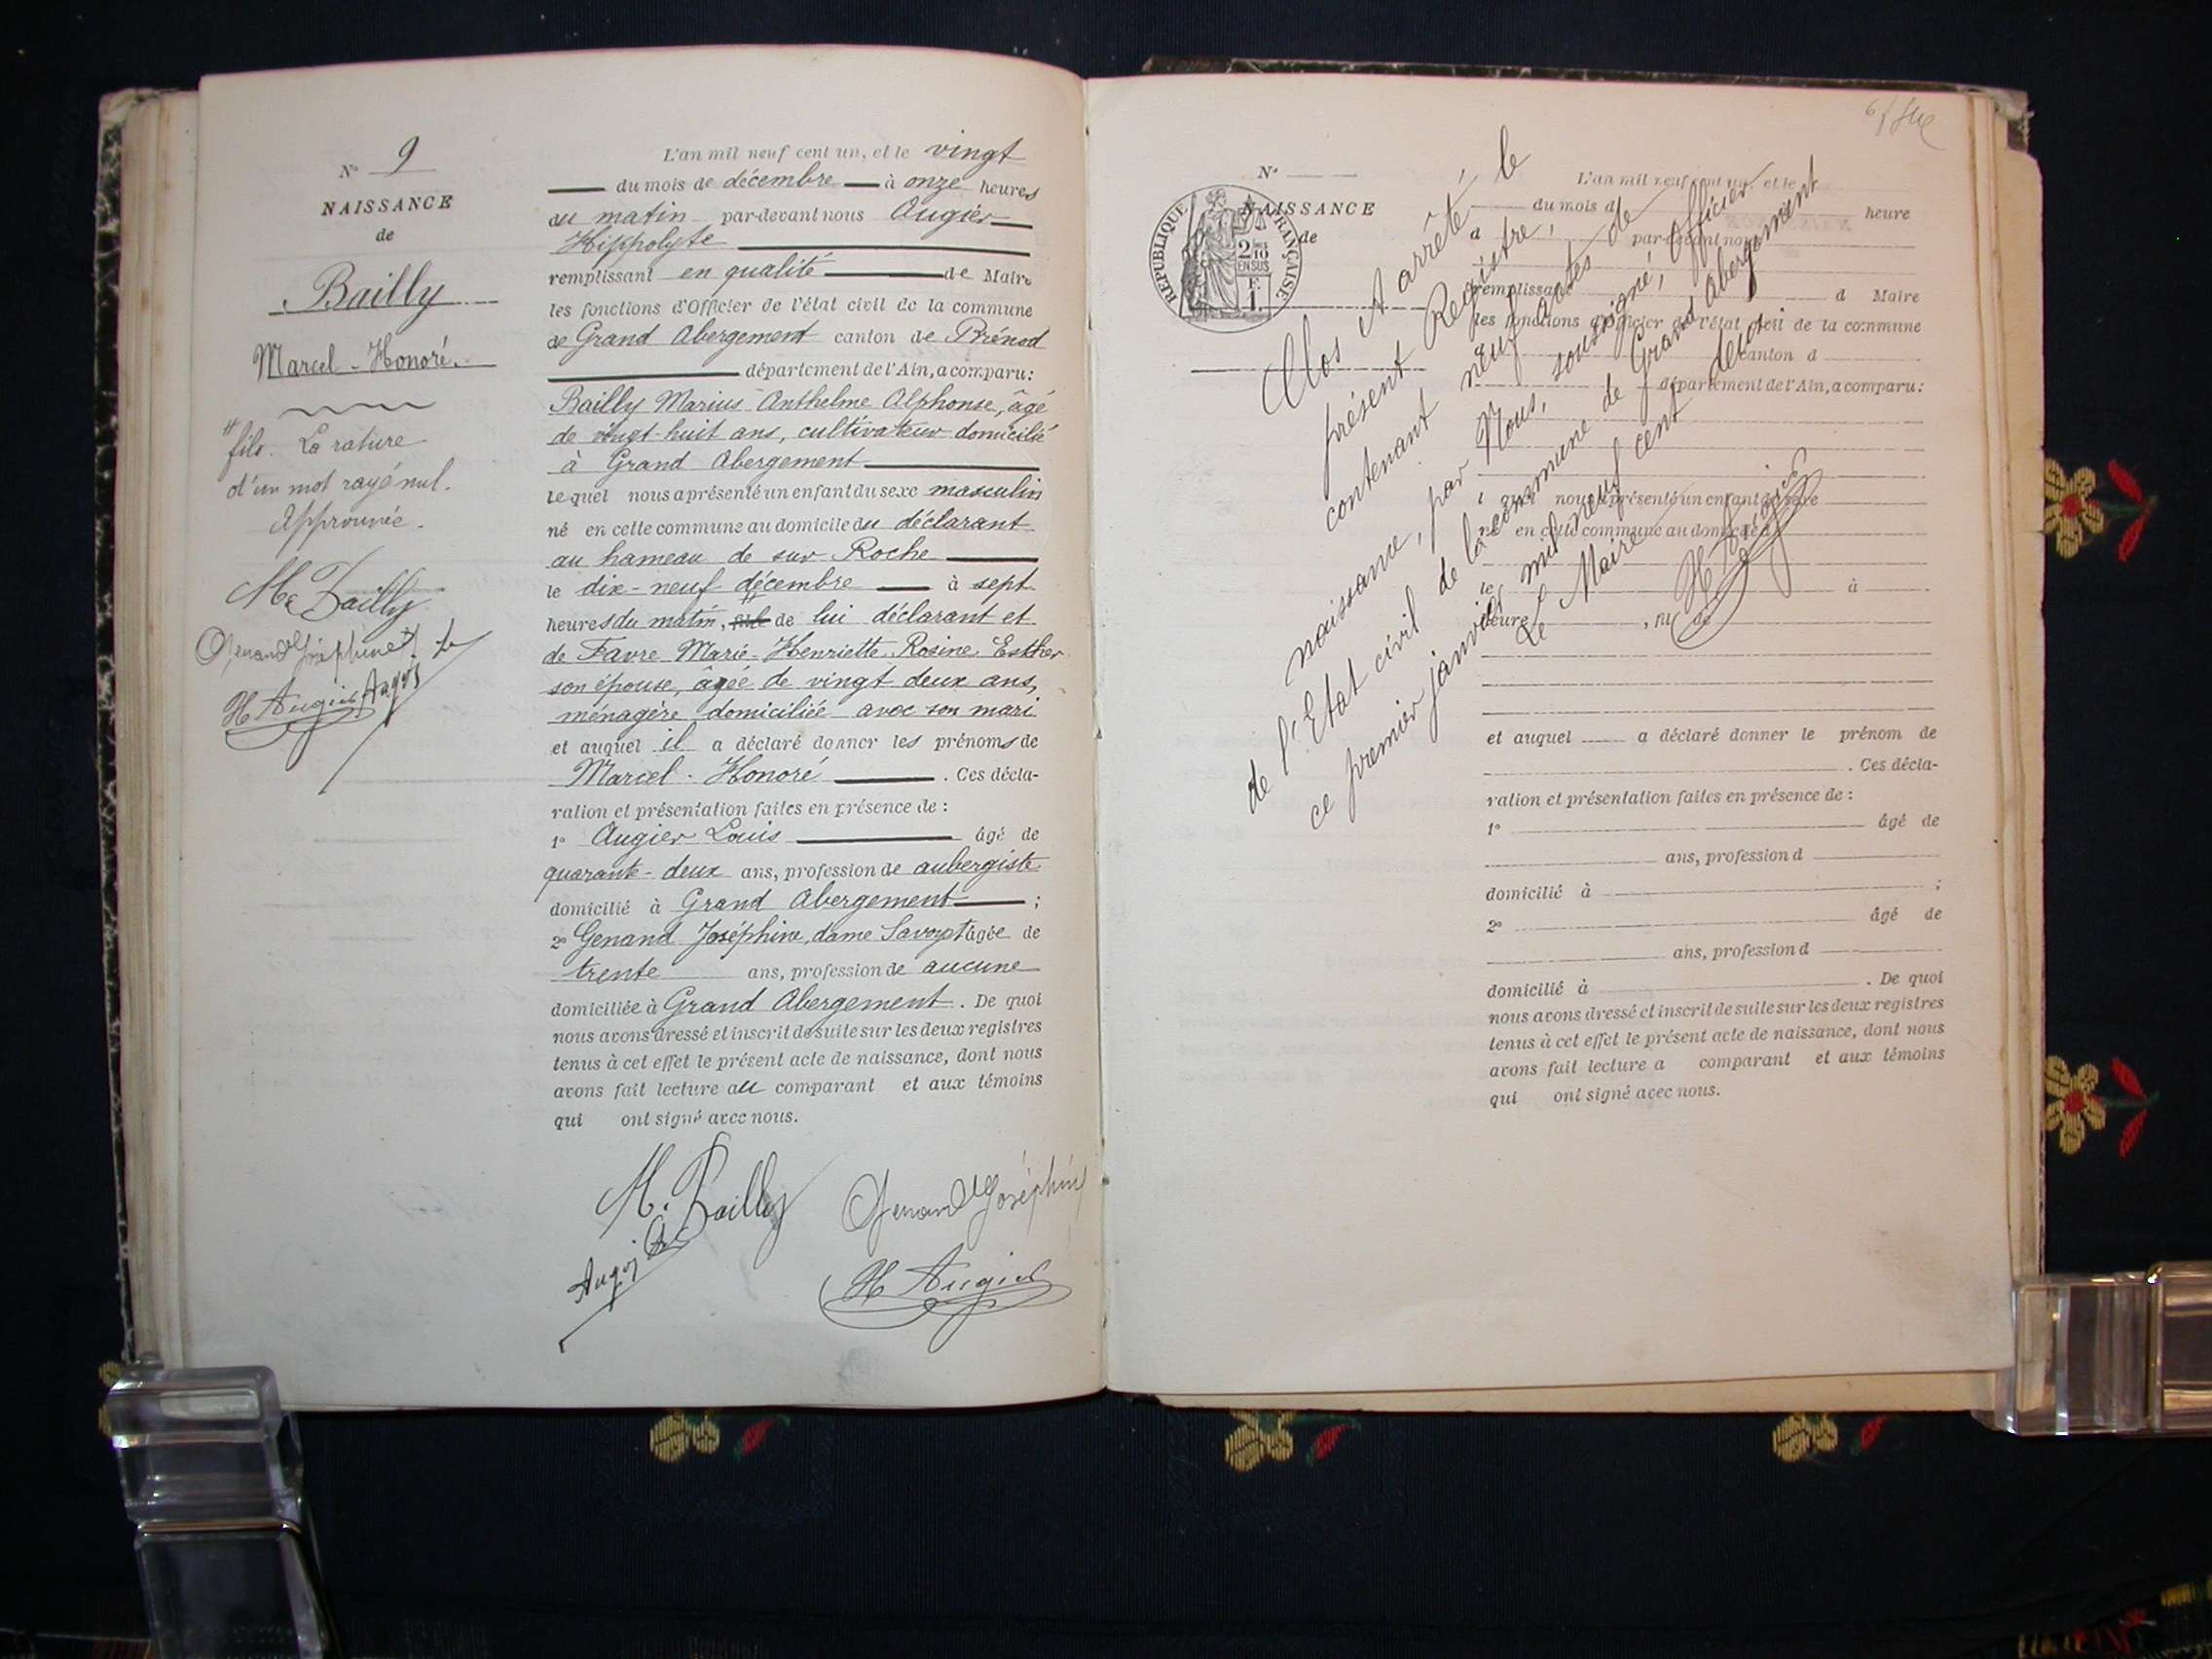 N° 9
NAISSANCE
de
Bailly
Marcel - Honoré.
# fils. La rature
d'un mot rayé nul.
Approuvée.
M. Bailly
Genand Joséphine
H Augier
L'an mil neuf cent un, et le vingt
du mois de décembre à onze heures
du matin par-devant nous Augier
Hippolyte
remplissant en qualité de Maire
les fonctions d'Officier de l'état civil de la commune
de Grand Abergement canton de Brénod
département de l'Ain, a comparu :
Bailly Marius Anthelme Alphonse, âgé
de vingt-huit ans, cultivateur domicilié
à Grand Abergement
lequel nous a présenté un enfant du sexe masculin
né en cette commune au domicile du déclarant
au hameau de sur Roche
le dix-neuf décembre à sept
heures du matin, # de lui déclarant et
de Favre Marie-Henriette Rosine Esther
son épouse, âgée de vingt deux ans,
ménagère domiciliée avec son mari
et auquel il a déclaré donner les prénoms de
Marcel - Honoré . Ces décla-
ration et présentation faites en présence de :
1° Augier Louis âgé de
quarante-deux ans, profession de aubergiste
domicilié à Grand Abergement ;
2° Genand Joséphine, dame Savoyet âgée de
trente ans, profession de aucune
domiciliée à Grand Abergement . De quoi
nous avons dressé et inscrit de suite sur les deux registres
tenus à cet effet le présent acte de naissance, dont nous
avons fait lecture au comparant et aux témoins
qui ont signé avec nous.
M. Bailly
Genand Joséphine
H Augier
N°
NAISSANCE
de
RÉPUBLIQUE FRANÇAISE
2/10 EN SUS
F. 1.
Clos et arrêté le
présent Registre,
contenant neuf actes de
naissance, par Nous, soussigné, Officier
de l'Etat civil de la commune de Grand Abergement
ce premier janvier mil neuf cent deux.
Le Maire
H Augier
L'an mil neuf cent un, et le
du mois d
heure
par-devant nous
remplissant d Maire
les fonctions d'Officier de l'état civil de la commune
canton d
département de l'Ain, a comparu :
l quel nous a présenté un enfant du sexe
né en cette commune au domicile d
le à
heure , fil de
et auquel a déclaré donner le prénom de
. Ces décla-
ration et présentation faites en présence de :
1° âgé de
ans, profession d
domicilié à ;
2° âgé de
ans, profession d
domicilié à . De quoi
nous avons dressé et inscrit de suite sur les deux registres
tenus à cet effet le présent acte de naissance, dont nous
avons fait lecture a comparant et aux témoins
qui ont signé avec nous.